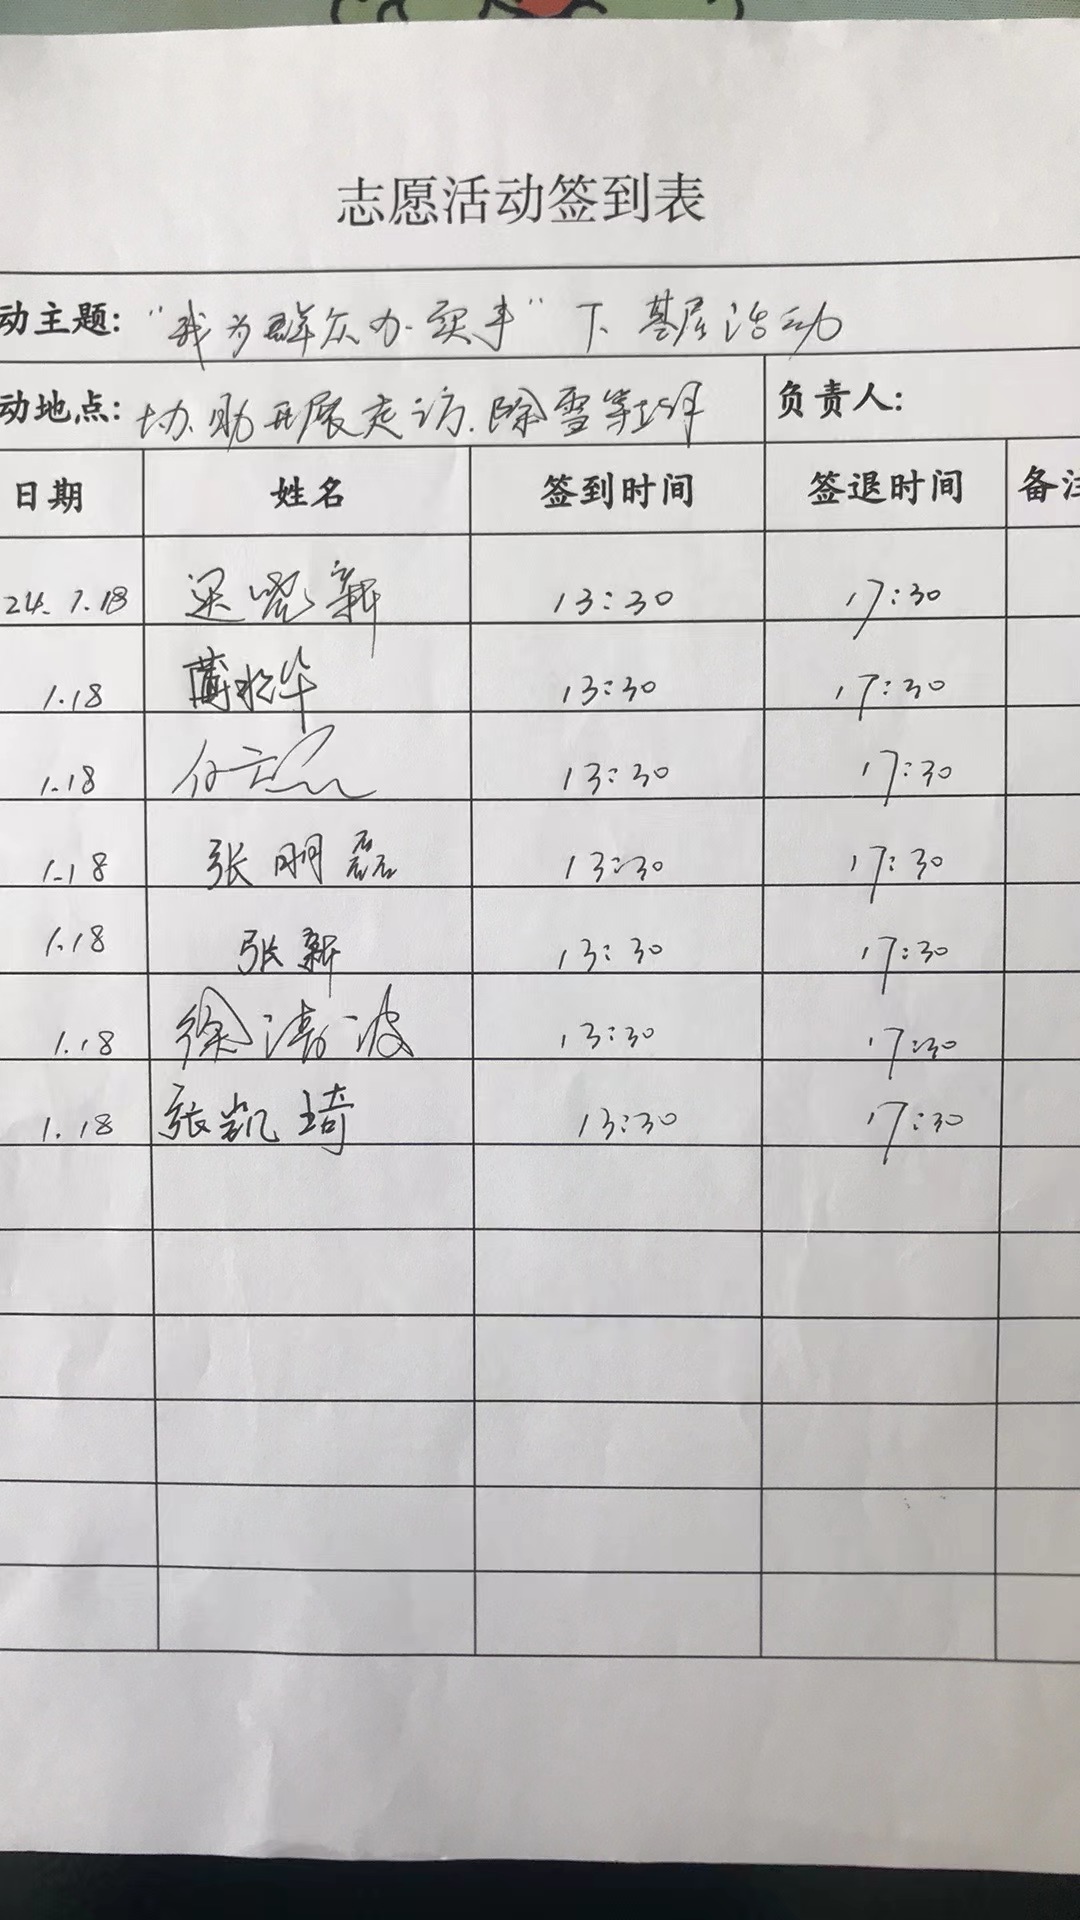 志愿活动签到表
动主题: "我为群众办实事" 下基层活动
动地点: 协助开展走访、除雪等 负责人:
日期 姓名 签到时间 签退时间 备注
24.1.18 新 13:30 17:30
1.18 华 13:30 17:30
1.18 13:30 17:30
1.18 张明磊 13:30 17:30
1.18 张新 13:30 17:30
1.18 徐涛波 13:30 17:30
1.18 张凯琦 13:30 17:30